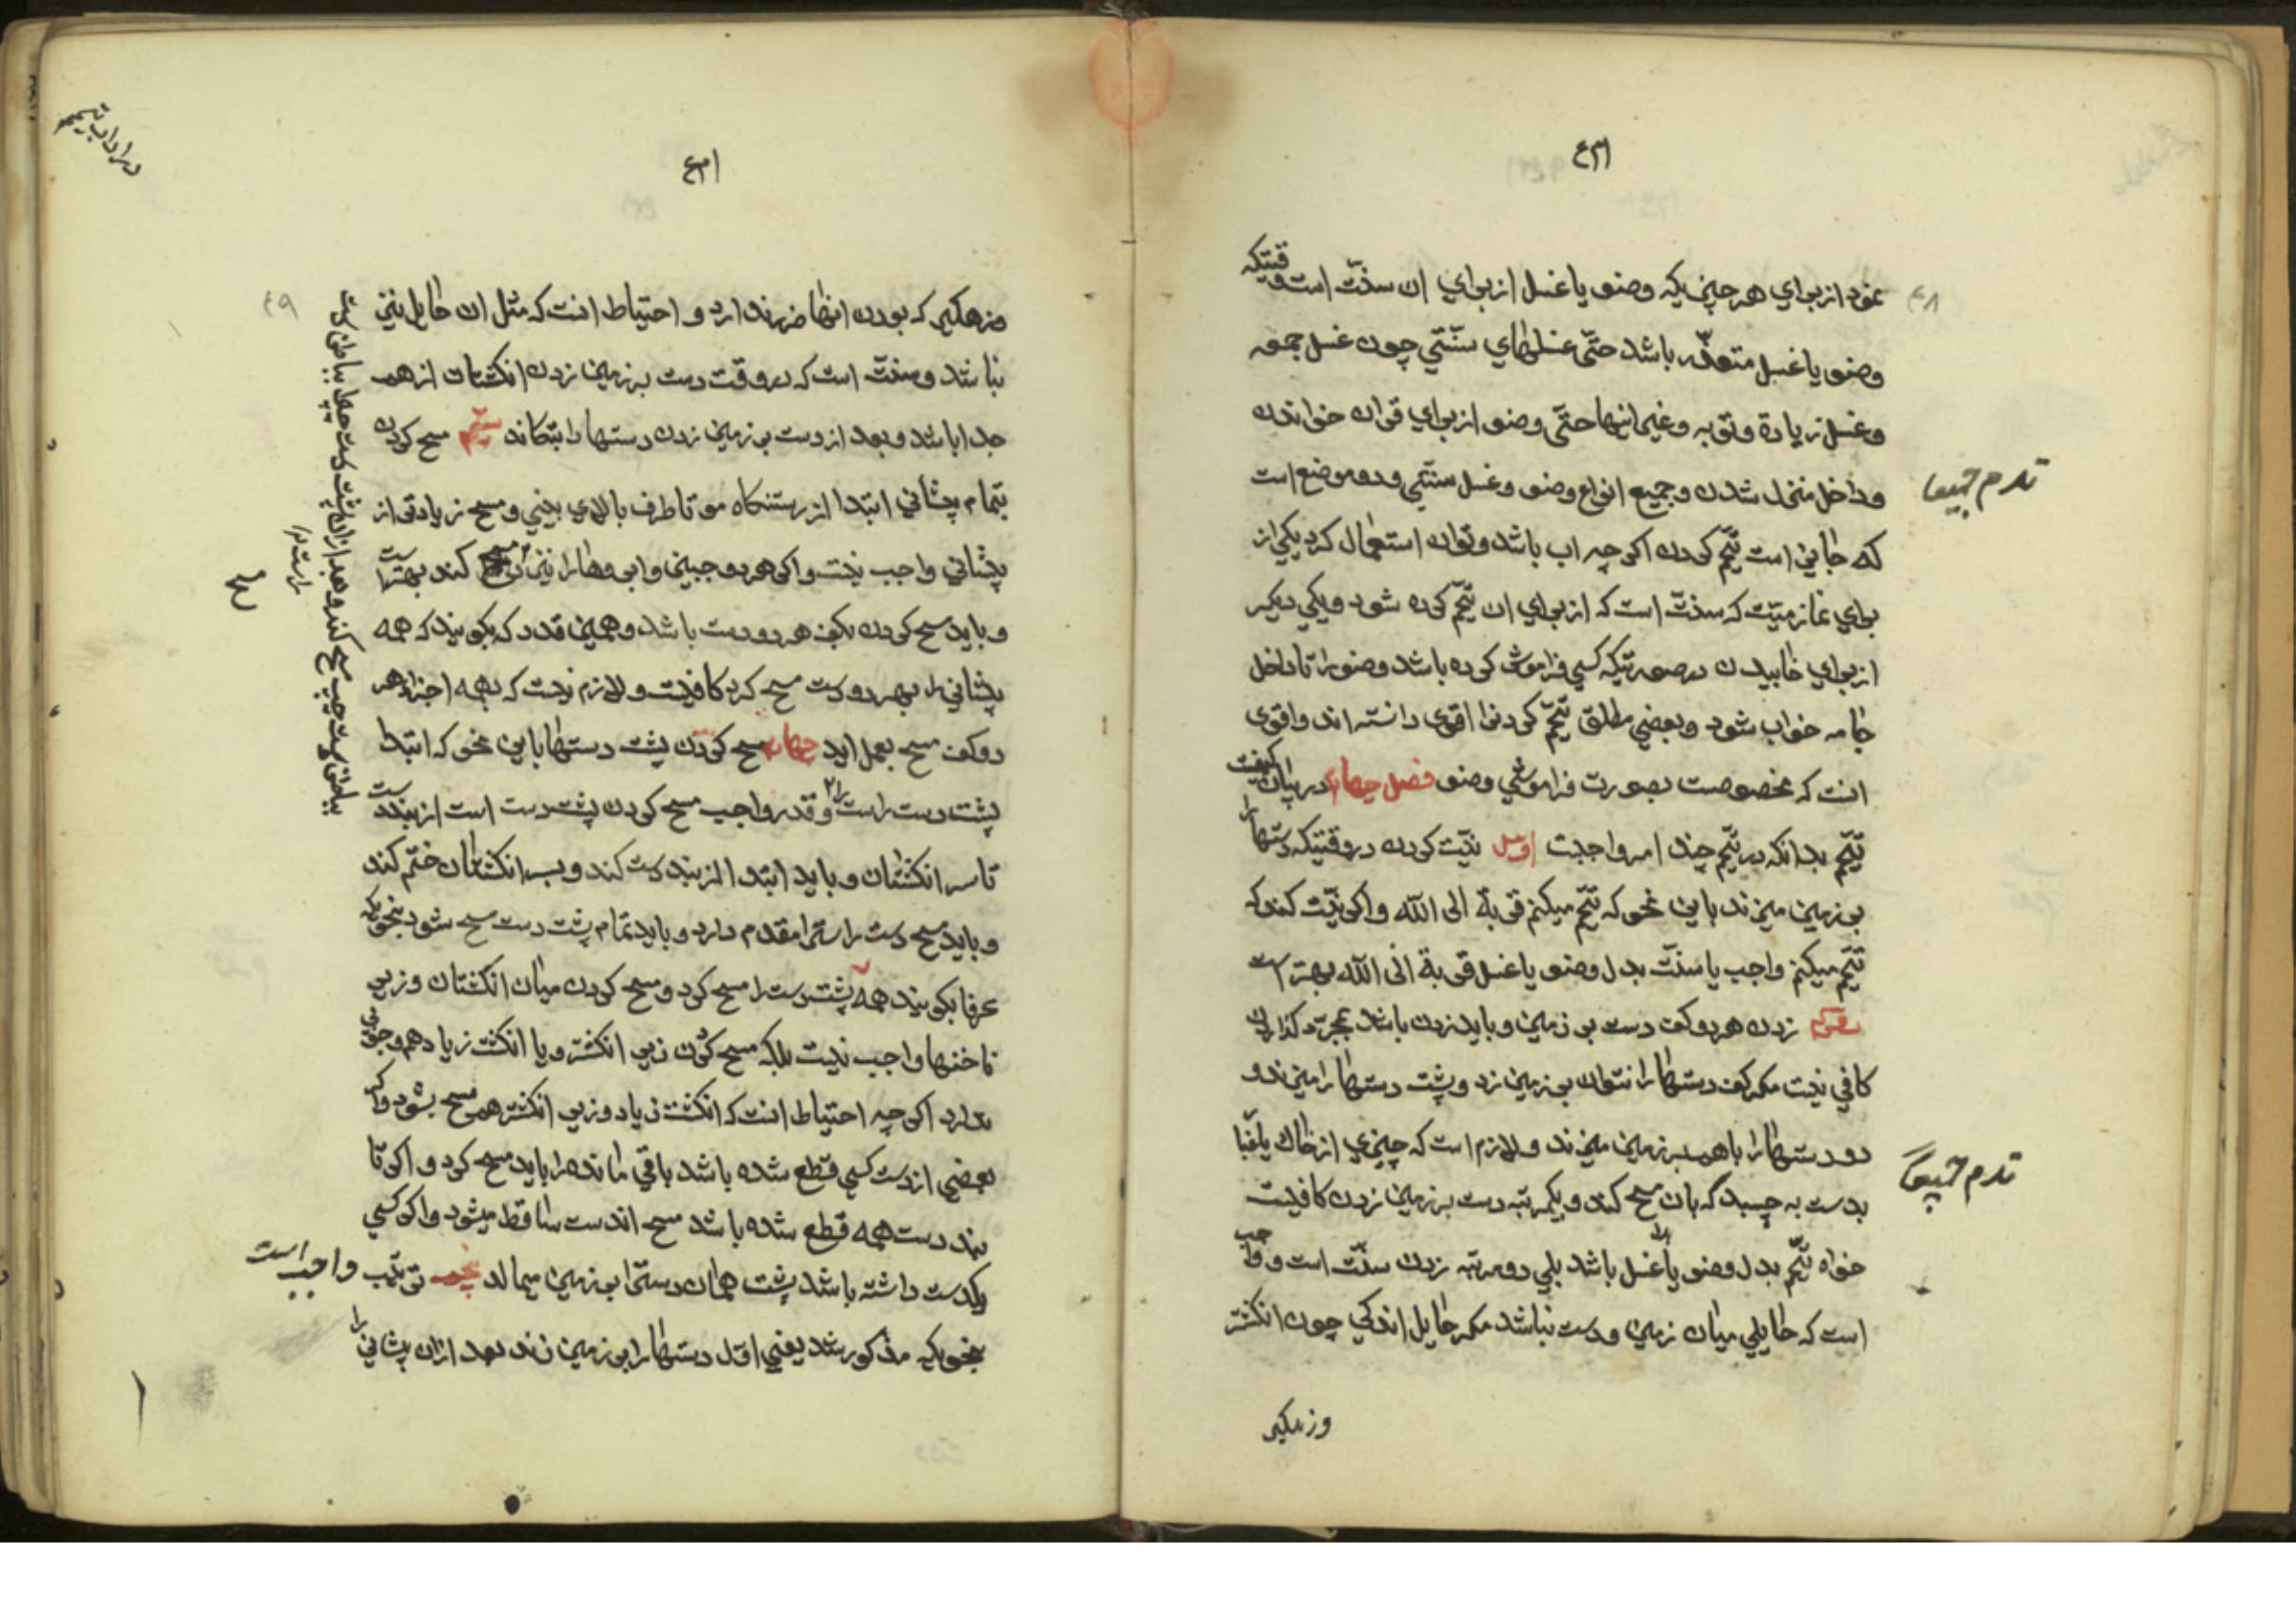 نمود از برای هر چیزیکه وضو یا غسل از برای ان سنّت است وقتیکه
وضو یا غسل متعذّر باشد حتّی غسلهای سنّتی چون غسل جمعه
وغسل زیارة وتوبه وغیر اینها حتّی وضو از برای قران خواندن
وداخل شدن وجمیع انواع وضو وغسل سنّتی ودو موضع است
که جایز است تیمّم کردن اکر چه اب باشد وتوان استعمال کرد یکی از
برای نماز میّت که سنّت است که از برای ان تیمّم کرده شود ویکی دیکر
از برای خابیدن در صورتیکه کسی فراموش کرده باشد وضو را تا داخل
جامه خواب شود وبعضی مطلق تیمّم کردنرا اقوی دانسته اند واقوی
انست که مخصوصست بصورت فراموشی وضو فصل چهارم در بیان کیفیت
تیمّم بدانکه در تیمّم چند امر واجبست اول نیّت کردن در وقتیکه دستها را
بر زمین میزند باین نحو که تیمّم میکنم قربة الی الله واکر نیّت کند که
تیمّم میکنم واجب یا سنّت بدل وضو یا غسل قربة الی الله بهتر است
دویم زدن هر دو کف دست بر زمین وباید زدن باشد بمجرّد کذاردن
کافی نیست مکر کف دستها را نتوان بر زمین زد وپشت دستها را میزند و
دو دستها را با هم بر زمین میزند ولازم است که چیزی از خاك یا غبا
بدست به چسبد که بان مسح کند ویکمرتبه دست بر زمین زدن کافیست
خواه تیمّم بدل وضو یا بدل غسل باشد بلی دو مرتبه زدن سنّت است وواجب
است که حایلی میان زمین ودست نباشد مکر حایل اندکی چون انکشتر
وزهکیر
در اداب تیمم
وزهکیر که بودن اینها ضرر ندارد واحتیاط انست که مثل ان حایل نیز
نباشد وسنّت است که در وقت دست بر زمین زدن انکشتان از هم
جدا باشد وبعد از دست بر زمین زدن دستها را بتکاند سیّم مسح کردن
بتمام پیشانی ابتدا از رستنکاه مو تا طرف بالای بینی ومسح زیادتی از
پیشانی واجب نیست واکر هر دو جبین وابروها را نیز مسح کند بهتر است
وباید مسح کردن بکف هر دو دست باشد وهمین قدر که بکویند که همه
پیشانی را بهر دو دست مسح کرد کافیست ولازم نیست که بهمه اجزاء هر
دو کف مسح بعمل اید چهارم مسح کردن پشت دستها باین نحو که ابتدا
پشت دست راست را وقدر واجب مسح کردن پشت دست است از بند دست
تا سر انکشتان وباید ابتدا از بند دست کند وبسر انکشتان ختم کند
وباید مسح دست راسترا مقدم دارد وباید تمام پشت دست مسح شود بنحویکه
عرفا بکویند همه پشت دست را مسح کرد ومسح کردن میان انکشتان وزیر
ناخنها واجب نیست بلکه مسح کردن زیر انکشتر ویا انکشت زیاد هم وجوبی
ندارد اکر چه احتیاط انست که انکشت زیاد وزیر انکشتر هم مسح بشود واکر
بعضی از دست کسی قطع شده باشد باقی مانده را باید مسح کرد واکر تا
بند دست همه قطع شده باشد مسح اندست ساقط میشود واکر کسی
یکدست داشته باشد پشت همان دسترا بر زمین میمالد پنجم ترتیب واجب است
بنحویکه مذکور شد یعنی اوّل دستها را بر زمین زند بعد از ان پیشانی را